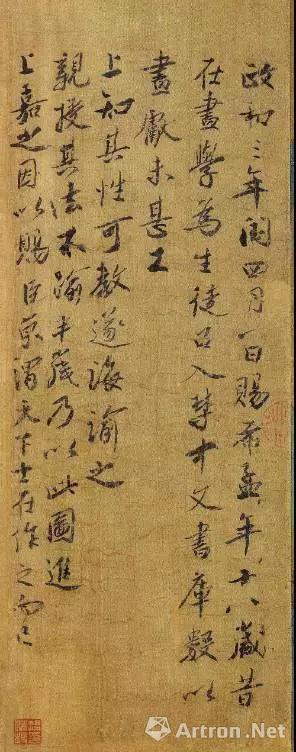 政和三年閏四月一日賜希孟年十八歲昔
在畫學為生徒召入禁中文書庫數以
畫獻未甚工
上知其性可教遂誨諭之
親授其法不踰半歲乃以此圖進
上嘉之因以賜臣京謂天下士在作之而已
雅昌艺术网
Artron.Net